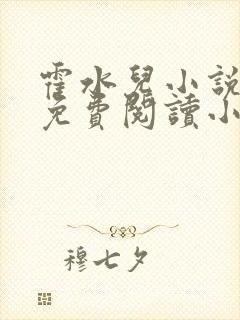 霍水兒小說
免費閱讀小
穆七夕